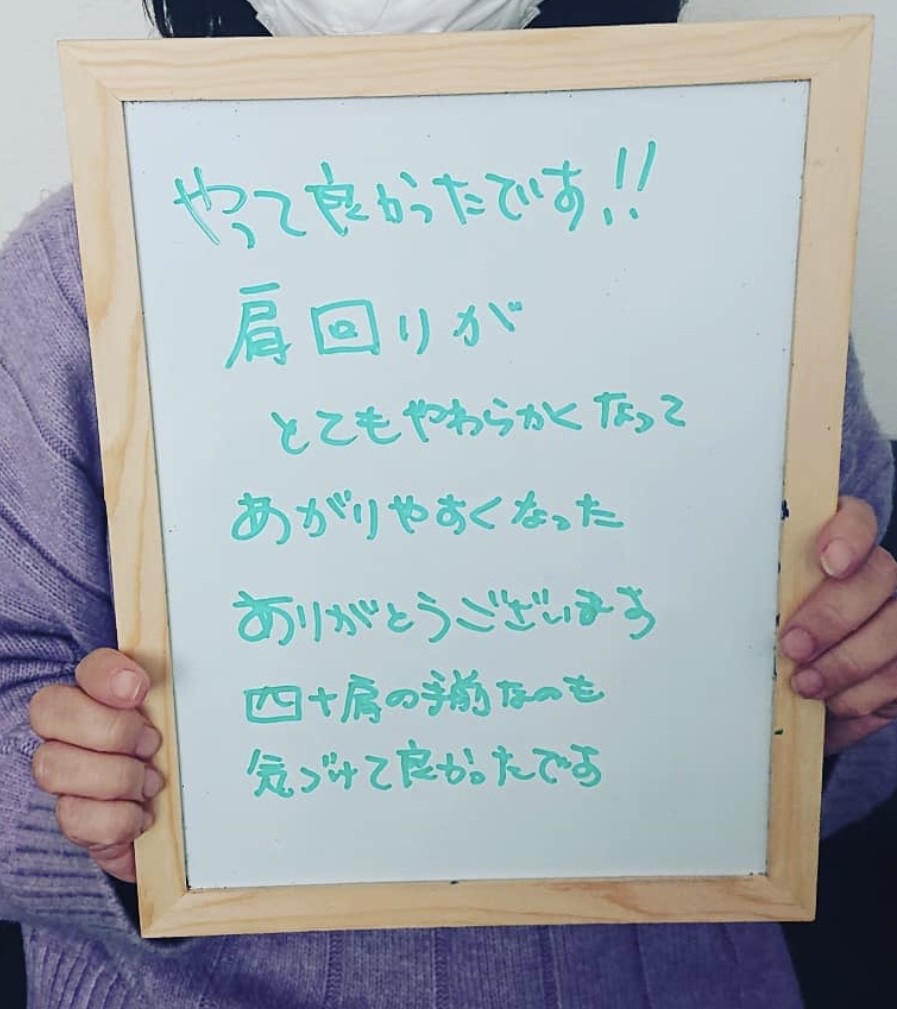 やって良かったです!!
肩回りが
とてもやわらかくなって
あがりやすくなった
ありがとうございます
四十肩の手前なのも
気づけて良かったです